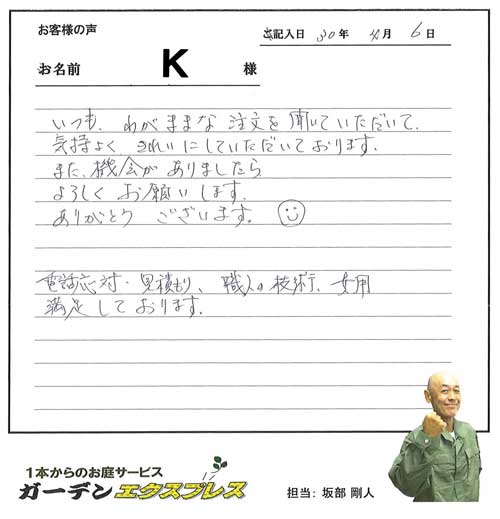 お客様の声
ご記入日 30年 4月 6日
お名前 K 様
いつも、わがままな注文を聞いていただいて、
気持よく きれいにしていただいております。
また、機会がありましたら
よろしく お願いします。
ありがとう ございます。
電話応対・見積もり、職人の技術、費用
満足しております。
1本からのお庭サービス
ガーデンエクスプレス
担当: 坂部 剛人